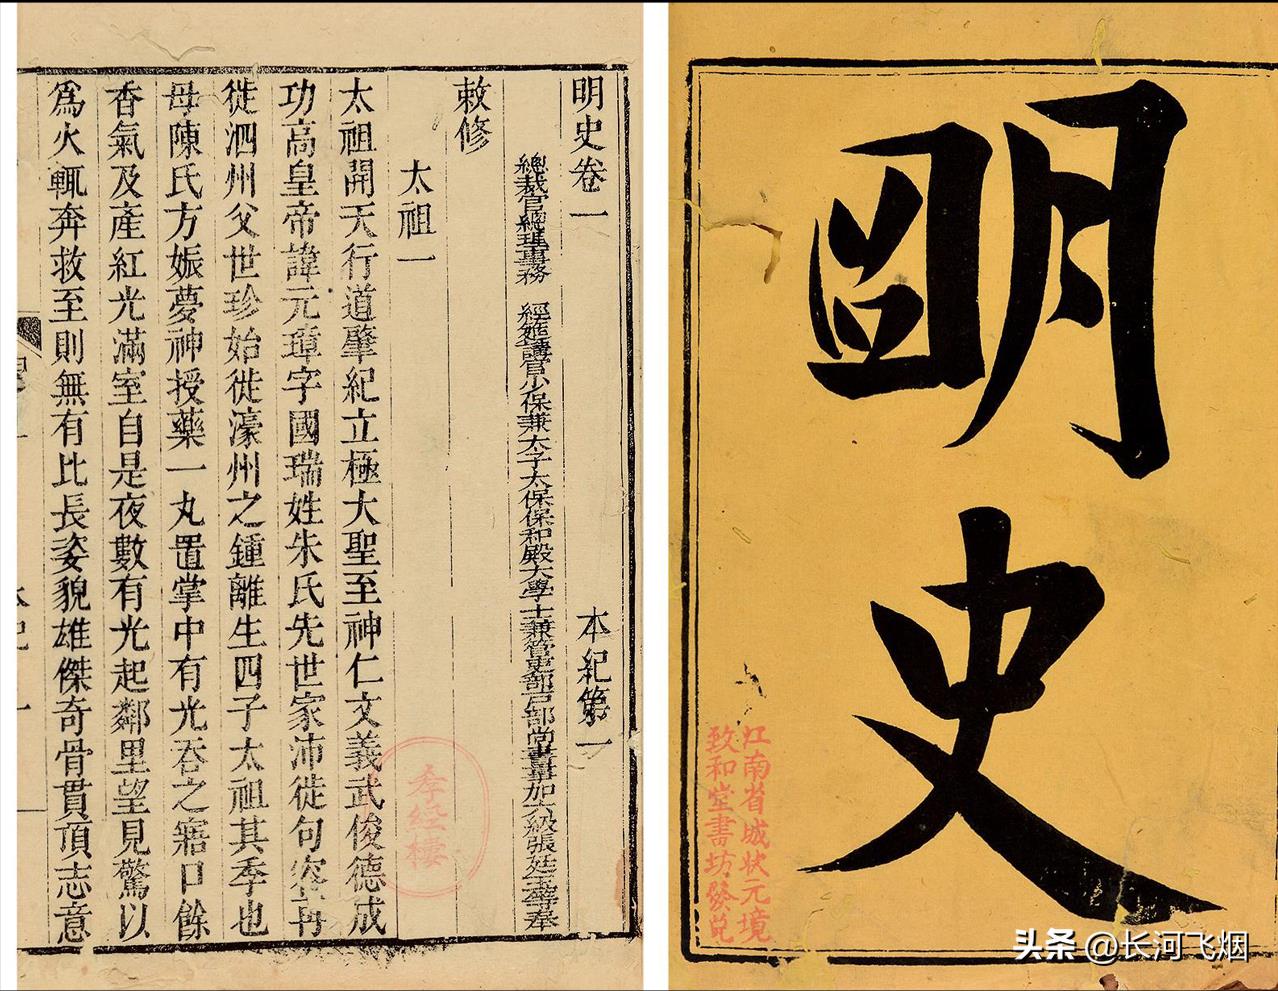 明史
江南省城狀元境
致和堂書坊發兌
明史卷一 本紀第一
總裁官總理事務 經筵講官少保兼太子太保保和殿大學士兼管吏部戶部尚書事加六級張廷玉等奉
敕修
太祖一
太祖開天行道肇紀立極大聖至神仁文義武俊德成
功高皇帝諱元璋字國瑞姓朱氏先世家沛徙句容再
徙泗州父世珍始徙濠州之鍾離生四子太祖其季也
母陳氏方娠夢神授藥一丸置掌中有光吞之寤口餘
香氣及產紅光滿室自是夜數有光起鄰里望見驚以
爲火輒奔救至則無有比長姿貌雄傑奇骨貫頂志意
头条 @长河飞烟